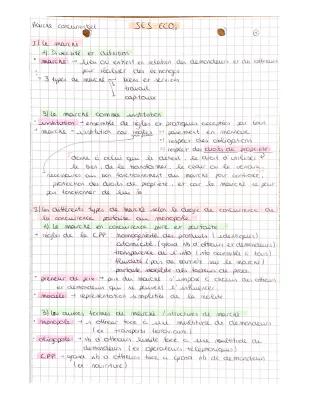 Marché concurrentiel SES-ECO1
I/ Le marché
A) Diversité et définition
• marché → lieu où entrent en relation des demandeurs et des offreurs
pour réaliser des échanges
• 3 types de marché → biens et services
travail
capitaux
B) Le marché comme institution
• institution → ensemble de règles et pratiques acceptées par tous
• marché → institution car règles → paiement en monnaie
→ respect des obligations
→ respect des droits de propriété
donne à celui qui le détient, le droit d'utiliser
le bien, de le transformer, le céder ou le vendre.
nécessaires au bon fonctionnement du marché pour
protection des droits de propriété, et car le marché ne peut
pas fonctionner
2) Les différents types de marché selon le degré de concurrence de
la concurrence parfaite au monopole
A) Le marché en concurrence pure et parfaite
• règles de la CPP : homogénéité des produits (identiques)
atomicité (grand nb d'offreurs et demandeurs)
transparence de l'info (info accessible à tous)
fluidité (pas de barrière sur le marché)
parfaite mobilité des facteurs de prod.
• preneur de prix → prix du marché s'impose à chacun des offreurs
et demandeurs qui ne peuvent l'influencer
• modèle → représentation simplifiée de la réalité
B) Les autres formes de marché / structures de marché
monopole → 1 offreur face à une multitude de demandeurs
(ex transports ferroviaires)
oligopole → nb d'offreurs limité face à une multitude de
demandeurs (ex opérateurs téléphoniques)
CPP → grand nb d'offreurs face à grand nb de demandeurs
(ex nourriture)